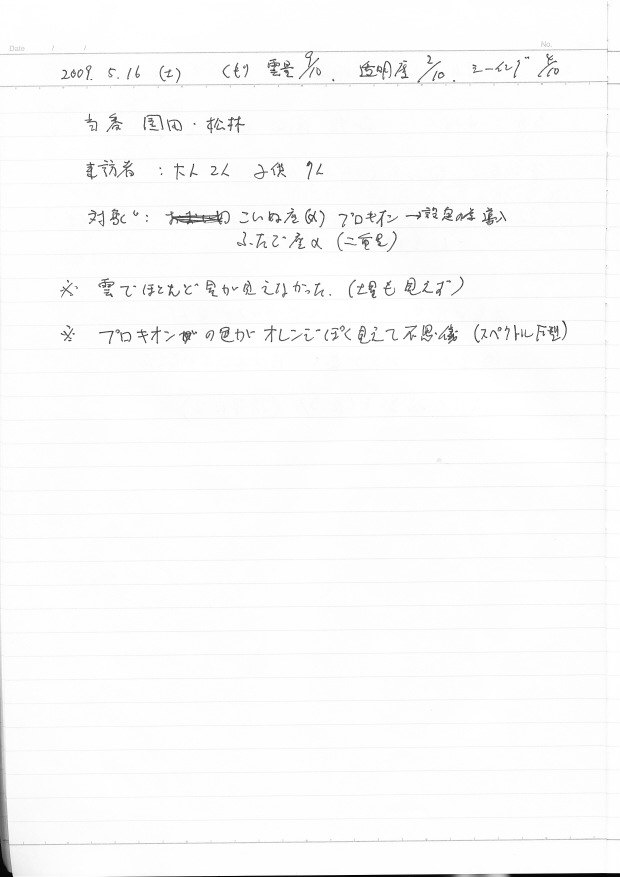 Date / / No.
2009. 5. 16 (土) くもり 雲量 9/10. 透明度 2/10. シーイング 5/10
当番 園田・松林
来訪者 : 大人 2人 子供 9人
対象 : こいぬ座(α) プロキオン →設定の為導入
ふたご座α (二重星)
※ 雲でほとんど星が見えなかった. (土星も見えず)
※ プロキオンの色がオレンジぽく見えて不思儀 (スペクトルF型)